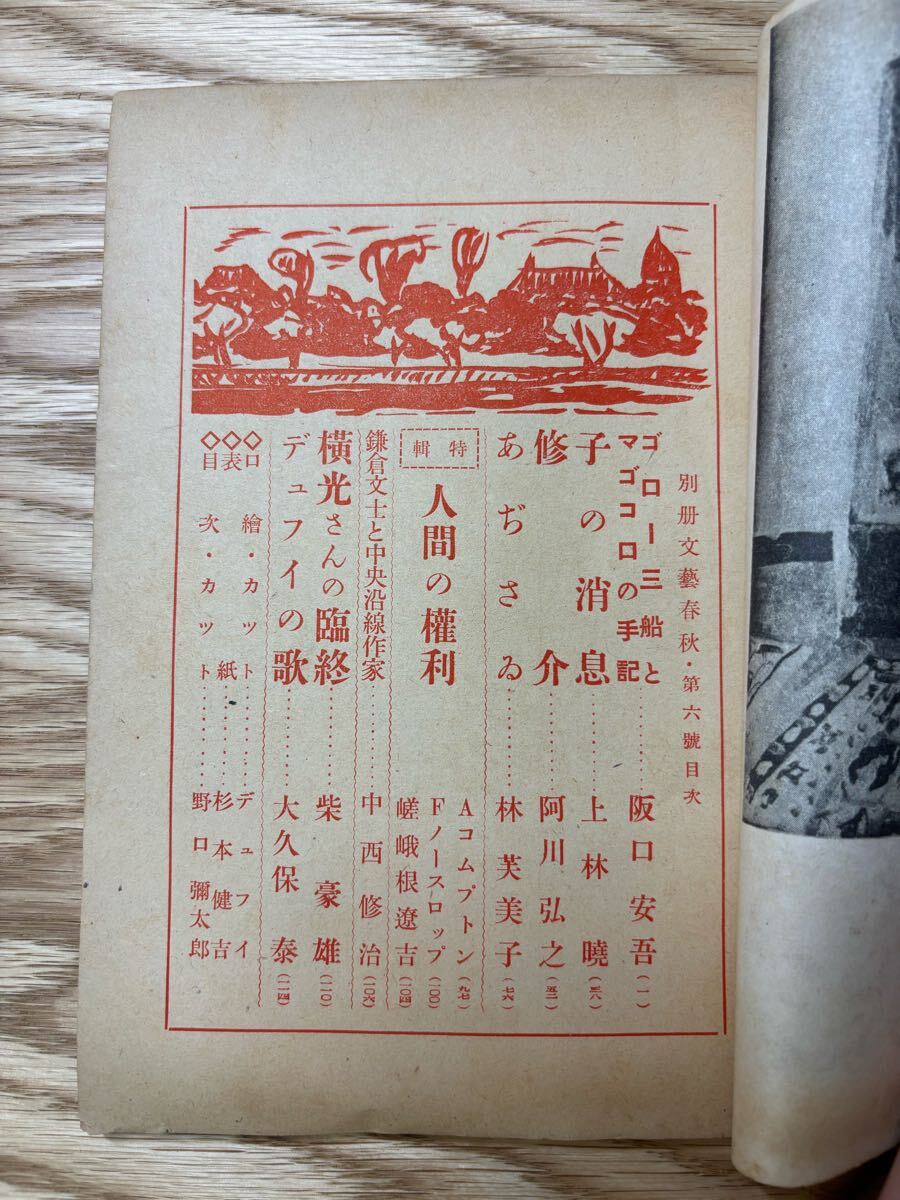 別册文藝春秋・第六號目次
ゴロー三船と
マゴコロの手記………阪口安吾(一)
子の消息………上林曉(三八)
修介………阿川弘之(五二)
あぢさゐ………林芙美子(七六)
特輯
人間の權利
Aコムプトン(九七)
Fノースロップ(一〇〇)
嵯峨根遼吉(一〇四)
鎌倉文士と中央沿線作家………中西修治(一〇六)
橫光さんの臨終………柴豪雄(一一〇)
デュフイの歌………大久保泰(一一四)
◇口繪・カット………デュフイ
◇表紙………杉本健吉
◇目次・カット………野口彌太郎